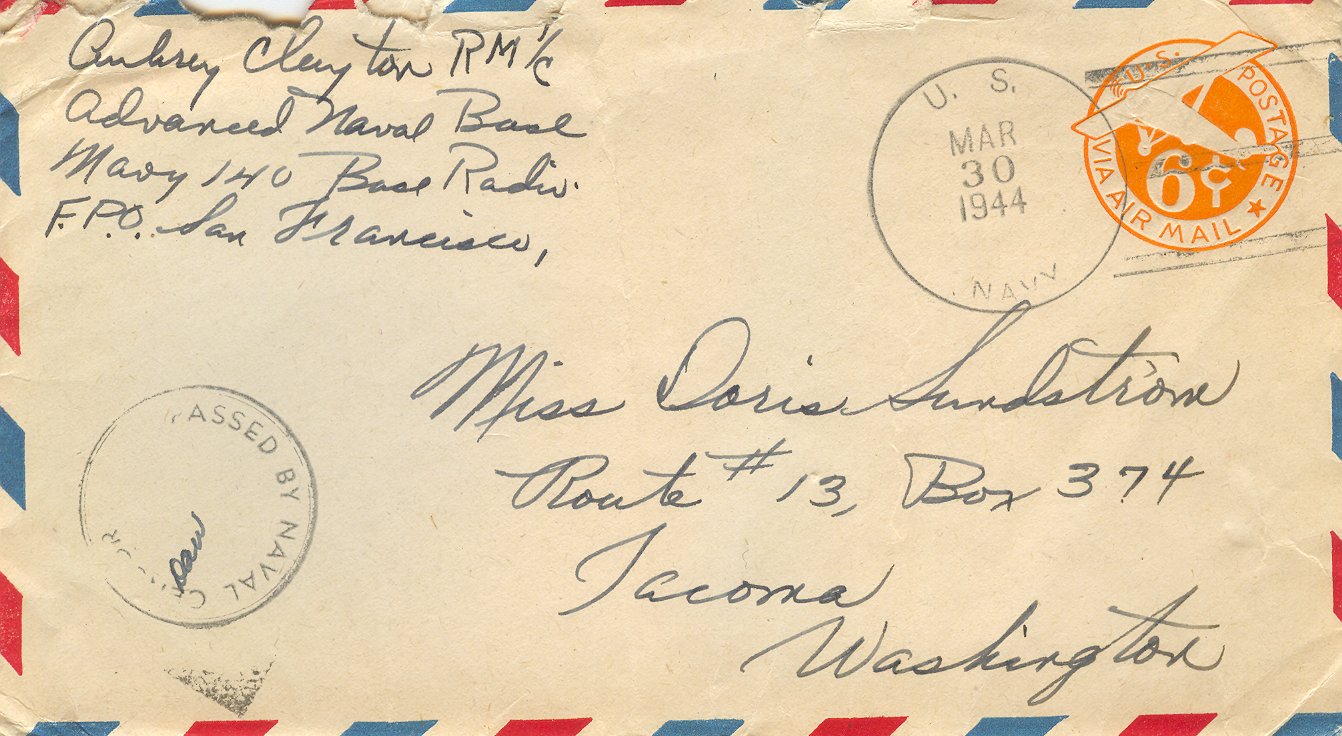 Aubrey Clayton RM 1/c
Advanced Naval Base
Navy 140 Base Radio
F.P.O. San Francisco,
U. S.
MAR
30
1944
NAVY
U.S. POSTAGE
6¢
VIA AIR MAIL
Miss Doris Sundstrom
Route # 13, Box 374
Tacoma
Washington
PASSED BY NAVAL CENSOR